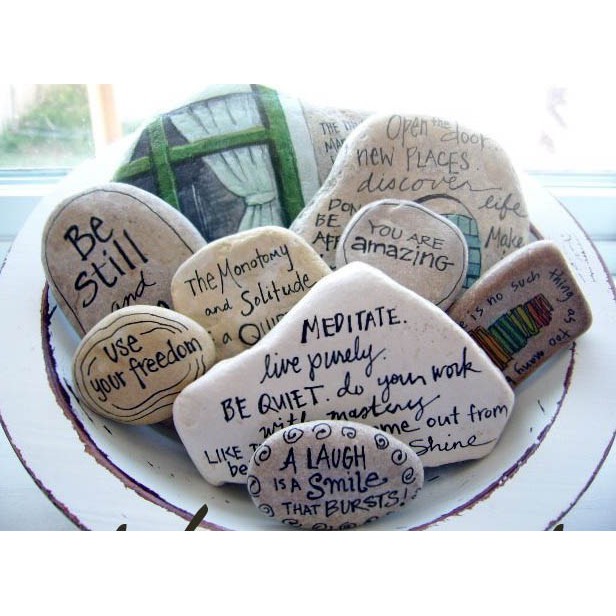 Open the door.
new PLACES.
discover life
DON
BE
AFR
Make
YOU ARE
amazing
Be
Still
and
The Monotony
and Solitude
a QUIE
is no such
thing as
too
many
use
your freedom
MEDITATE.
live purely.
BE QUIET. do your work
with mastery
LIKE
me out from
be
Shine
A LAUGH
IS A Smile
THAT BURSTS!